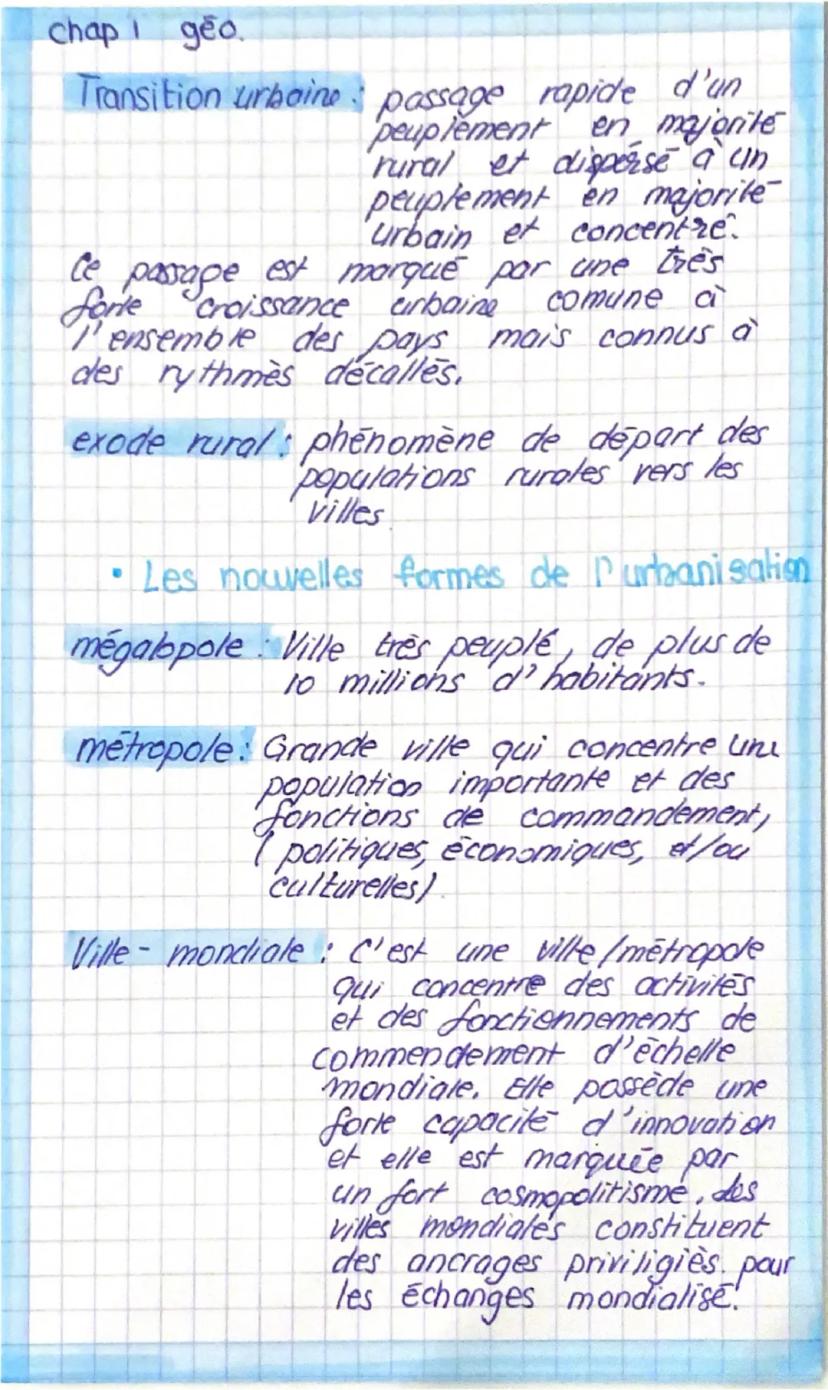 Chap 1 géo.
Transition urbaine : passage rapide d'un
peuplement en majorité
rural et dispérsé à un
peuplement en majorité
urbain et concentré.
Ce passage est marqué par une très
forte croissance urbaine comune à
l'ensemble des pays mais connus à
des rythmès décallés.
exode rural : phénomène de départ des
populations rurales vers les
villes
• Les nouvelles formes de l'urbanisation
mégalopole : Ville très peuplé, de plus de
10 millions d'habitants.
métropole : Grande ville qui concentre une
population importante et des
fonctions de commandement,
( politiques, économiques, et/ou
culturelles)
Ville - mondiale : C'est une ville/métropole
qui concentre des activités
et des fonctionnements de
commendement d'échelle
mondiale. Elle possède une
forte capacité d'innovation
et elle est marquée par
un fort cosmopolitisme, des
villes mondiales constituent
des ancrages priviligiès. pour
les échanges mondialisé.